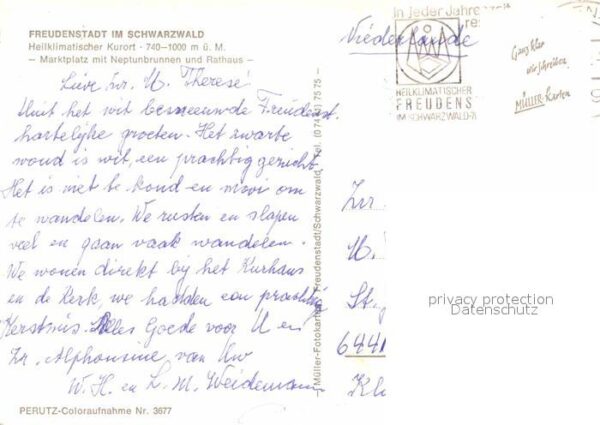 FREUDENSTADT IM SCHWARZWALD
Heilklimatischer Kurort · 740–1000 m ü. M.
– Marktplatz mit Neptunbrunnen und Rathaus –
Lieve Zr. M. Therese!
Uuit het wit besneeuwde Freudenst.
hartelijke groeten. Het swarte
woud is wit, een prachtig gezicht.
Het is niet te koud en mooi om
te wandelen. We rusten en slapen
veel en gaan vaak wandelen.
We wonen direkt bij het Kurhaus
en de Kerk, we hadden een prachtig
Kerstmis. Alles Goede voor U en
Zr. Alphonsine van Uw
W. H. en L. M. Weidemann
PERUTZ-Coloraufnahme Nr. 3677
Müller-Fotokarten Freudenstadt/Schwarzwald Tel. (07441) 75 75
Niederlande
In jeder Jahres
HEILKLIMATISCHER
FREUDENS
IM SCHWARZWALD
Ganz klar
wir schreiben
MÜLLER-Karten
Zr.
M.
St.
6441
Kl
privacy protection
Datenschutz